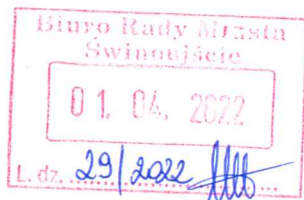 Biuro Rady Miasta
Świnoujście
01. 04. 2022
L. dz. 29/2022